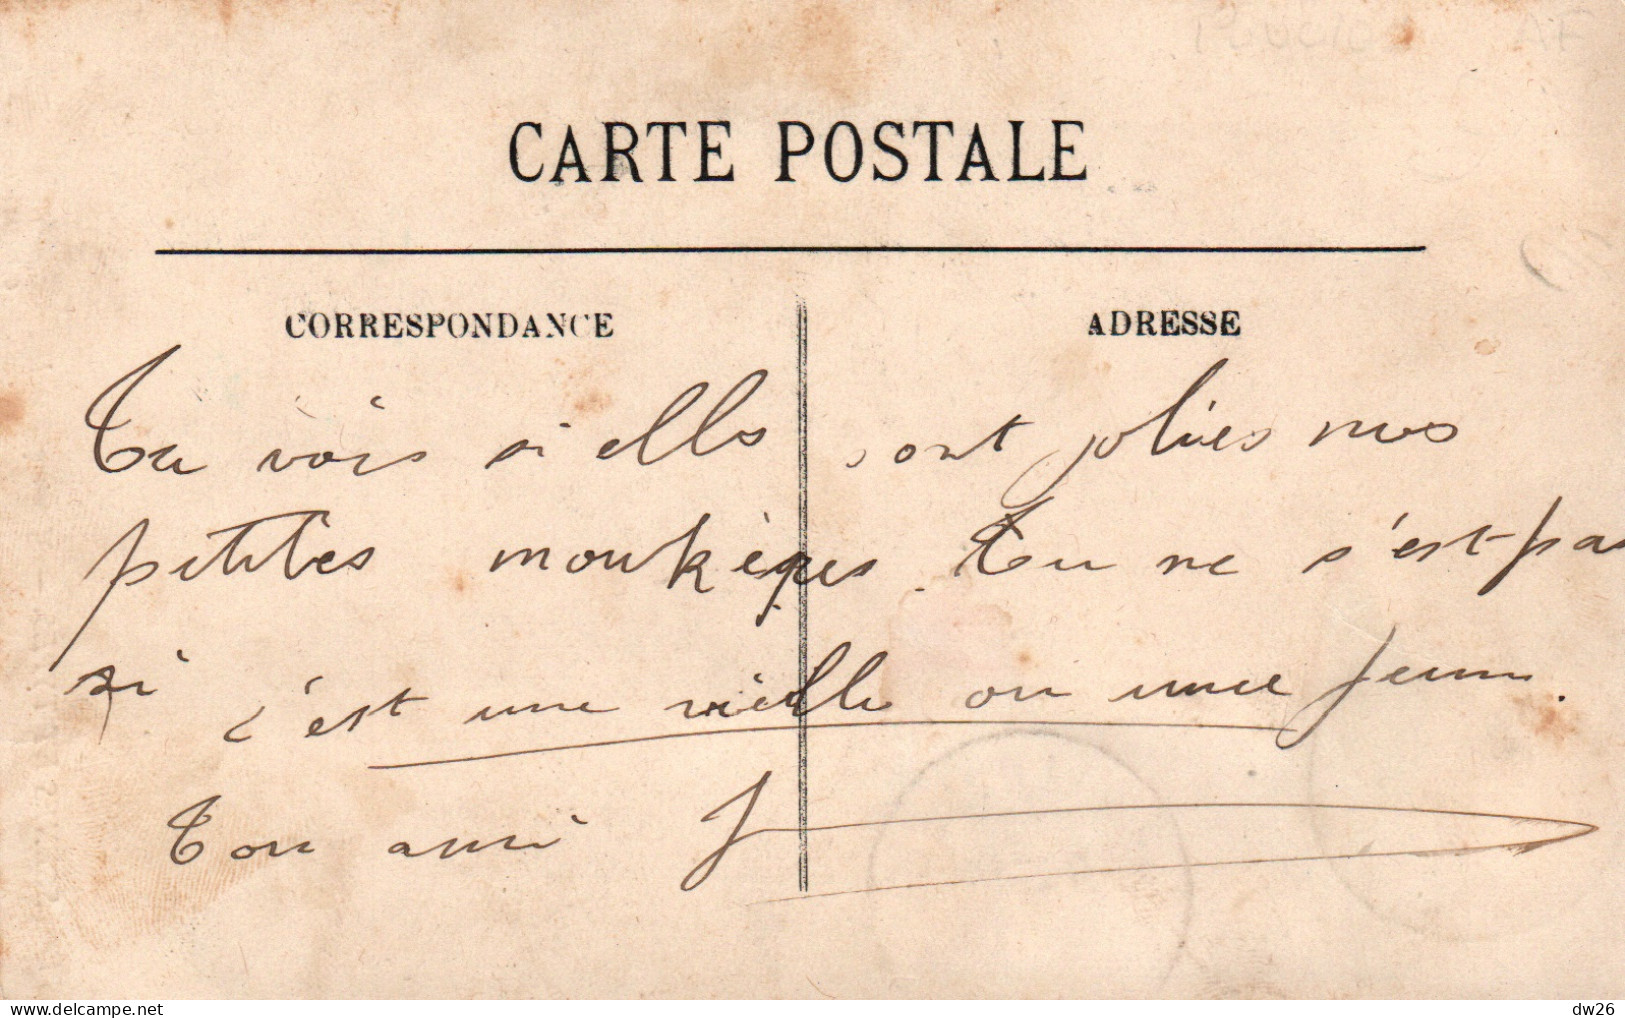 CARTE POSTALE
CORRESPONDANCE
ADRESSE
Tu vois si elles sont jolies nos
petites moukèques. Tu ne s'est pas
si c'est une vielle ou une jeune.
Ton ami J
dw26